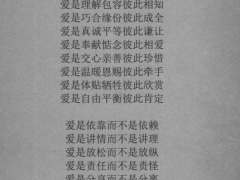 爱是理解包容彼此相知
爱是巧合缘份彼此成全
爱是真诚平等彼此谦让
爱是奉献惦念彼此相爱
爱是交心亲善彼此珍惜
爱是温暖恩赐彼此牵手
爱是体贴牺牲彼此欣赏
爱是自由平衡彼此肯定
爱是依靠而不是依赖
爱是讲情而不是讲理
爱是放松而不是放纵
爱是责任而不是责怪
爱是分享而不是分离